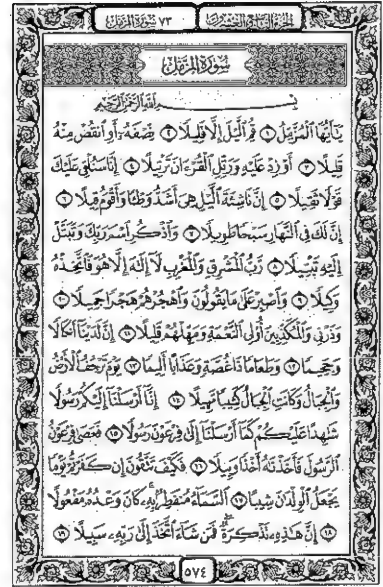 الجزء التاسع والعشرون
٧٣ سورة المزمل
سورة المزمل
بسم الله الرحمن الرحيم
يَٰٓأَيُّهَا ٱلْمُزَّمِّلُ ١ قُمِ ٱلَّيْلَ إِلَّا قَلِيلًا ٢ نِّصْفَهُۥٓ أَوِ ٱنقُصْ مِنْهُ
قَلِيلًا ٣ أَوْ زِدْ عَلَيْهِ وَرَتِّلِ ٱلْقُرْءَانَ تَرْتِيلًا ٤ إِنَّا سَنُلْقِى عَلَيْكَ
قَوْلًا ثَقِيلًا ٥ إِنَّ نَاشِئَةَ ٱلَّيْلِ هِىَ أَشَدُّ وَطْـًٔا وَأَقْوَمُ قِيلًا ٦
إِنَّ لَكَ فِى ٱلنَّهَارِ سَبْحًا طَوِيلًا ٧ وَٱذْكُرِ ٱسْمَ رَبِّكَ وَتَبَتَّلْ
إِلَيْهِ تَبْتِيلًا ٨ رَّبُّ ٱلْمَشْرِقِ وَٱلْمَغْرِبِ لَآ إِلَٰهَ إِلَّا هُوَ فَٱتَّخِذْهُ
وَكِيلًا ٩ وَٱصْبِرْ عَلَىٰ مَا يَقُولُونَ وَٱهْجُرْهُمْ هَجْرًا جَمِيلًا ١٠
وَذَرْنِى وَٱلْمُكَذِّبِينَ أُو۟لِى ٱلنَّعْمَةِ وَمَهِّلْهُمْ قَلِيلًا ١١ إِنَّ لَدَيْنَآ أَنكَالًا
وَجَحِيمًا ١٢ وَطَعَامًا ذَا غُصَّةٍ وَعَذَابًا أَلِيمًا ١٣ يَوْمَ تَرْجُفُ ٱلْأَرْضُ
وَٱلْجِبَالُ وَكَانَتِ ٱلْجِبَالُ كَثِيبًا مَّهِيلًا ١٤ إِنَّآ أَرْسَلْنَآ إِلَيْكُمْ رَسُولًا
شَٰهِدًا عَلَيْكُمْ كَمَآ أَرْسَلْنَآ إِلَىٰ فِرْعَوْنَ رَسُولًا ١٥ فَعَصَىٰ فِرْعَوْنُ
ٱلرَّسُولَ فَأَخَذْنَٰهُ أَخْذًا وَبِيلًا ١٦ فَكَيْفَ تَتَّقُونَ إِن كَفَرْتُمْ يَوْمًا
يَجْعَلُ ٱلْوِلْدَٰنَ شِيبًا ١٧ ٱلسَّمَآءُ مُنفَطِرٌۢ بِهِۦ كَانَ وَعْدُهُۥ مَفْعُولًا
١٨ إِنَّ هَٰذِهِۦ تَذْكِرَةٌ فَمَن شَآءَ ٱتَّخَذَ إِلَىٰ رَبِّهِۦ سَبِيلًا ١٩
٥٧٤